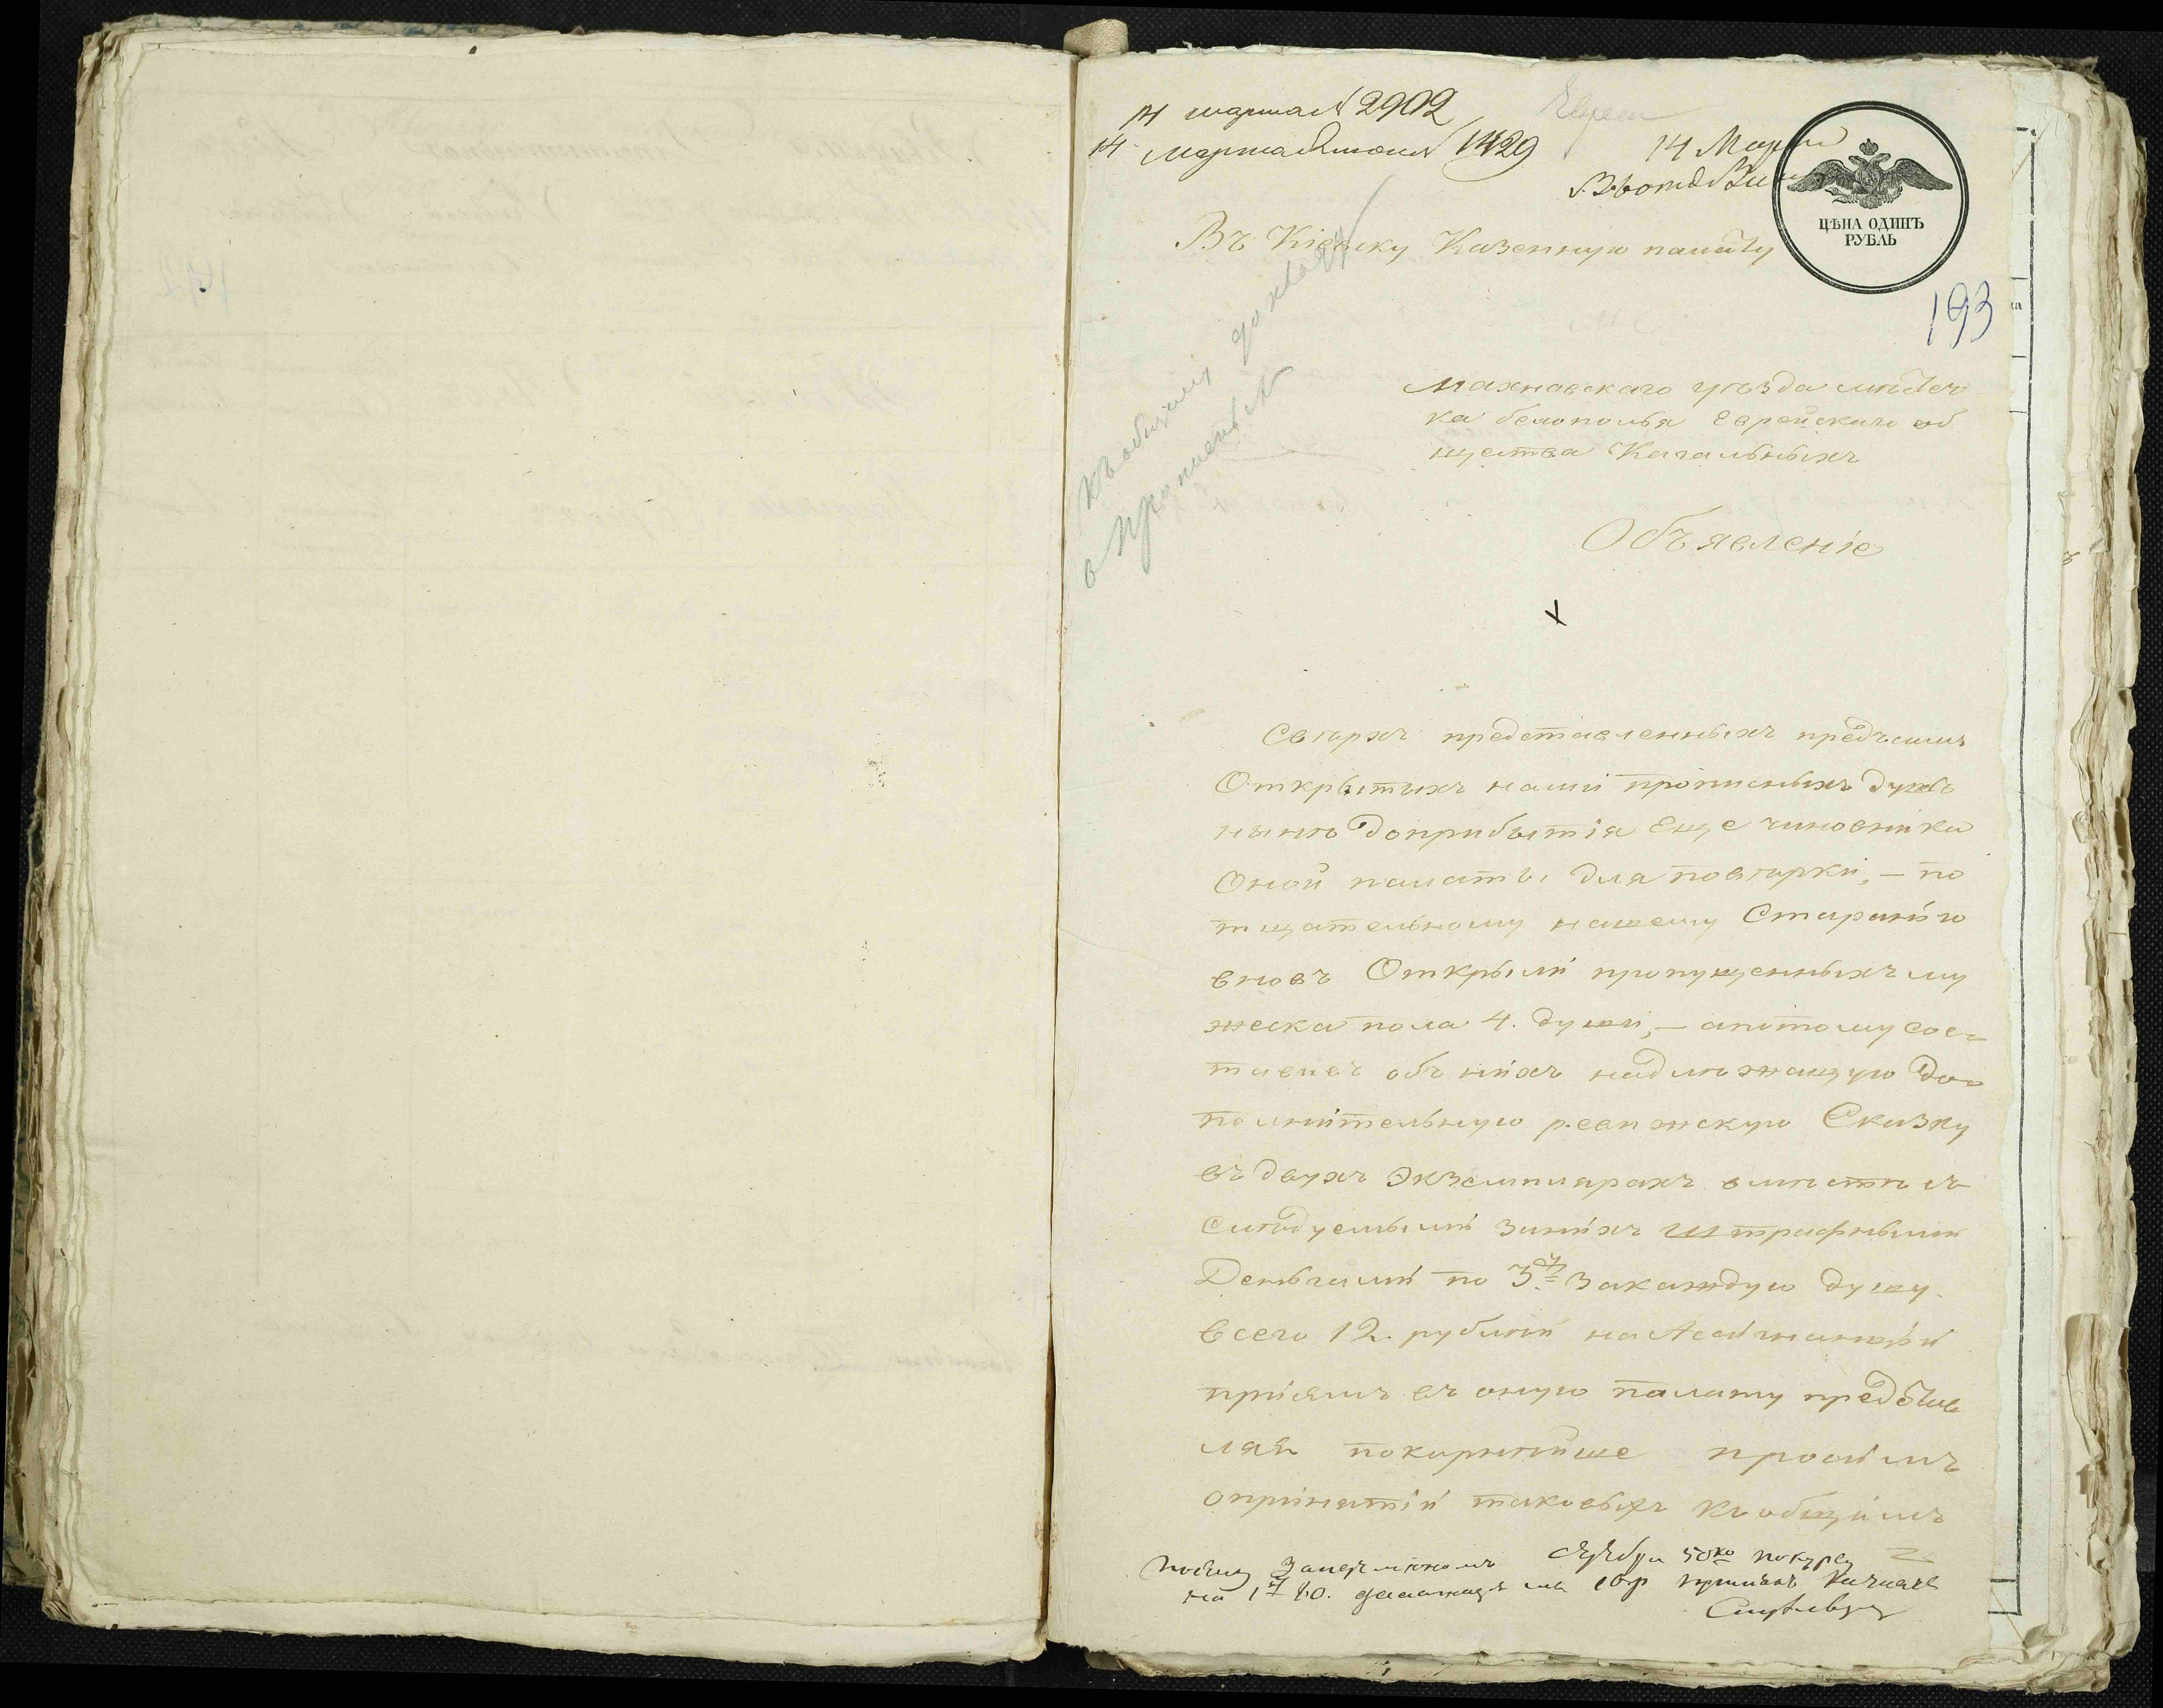 14 марта № 2902
14 марта 1429
Евреи
14 Марта
ЦѢНА ОДИНЪ
РУБЛЬ
Въ Кіевску Казенную палату
193
Къ общему докладу
о прописныхъ
Махновскаго уѣзда мѣстеч
ка белополья Еврейскаго об
щества Кагальныхъ
Объявленіе
Свѣрхъ представленныхъ предъ симъ
Открытыхъ нами прописныхъ душъ
нынѣ доприбытія Еще чиновника
Оной палаты для повѣрки, – по
тщательному нашему Старанію
вновъ Открыли пропущенныхъ му
жеска пола 4. души, – апотому сос
тавивъ объ нихъ надлежащую До
полнительную ревижскую Сказку
въ двухъ Экземплярахъ вместѣ съ
Слѣдуемыми занихъ Штрафными
Деньгами по 3 р закаждую душу
всего 12. рублей на Асигнацій
при семъ въ оную палату представ
ляя покорнѣйше просимъ
опринятій таковыхъ къ общимъ